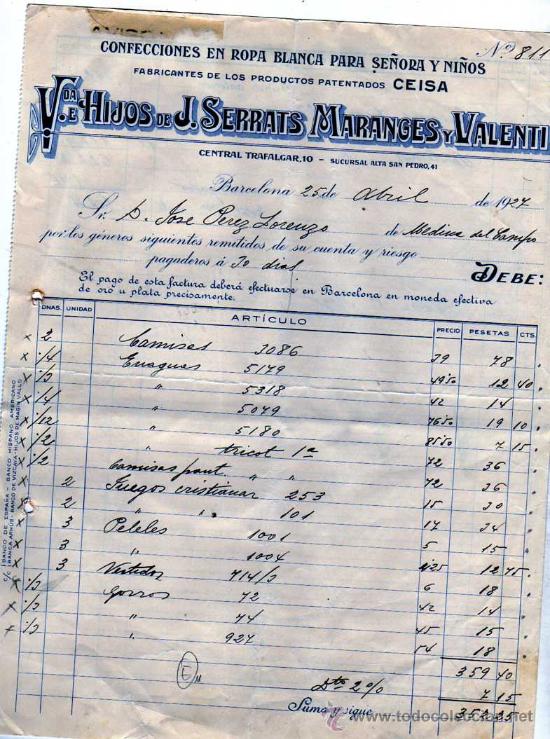 CONFECCIONES EN ROPA BLANCA PARA SEÑORA Y NIÑOS
Nº 811
FABRICANTES DE LOS PRODUCTOS PATENTADOS CEISA
V.DA E HIJOS DE J. SERRATS MARANGES Y VALENTI
CENTRAL TRAFALGAR, 10 – SUCURSAL ALTA SAN PEDRO, 41
Barcelona 25 de Abril de 1927
Sr. D. Jose Perez Lorenzo de Medina del Campo
por los géneros siguientes remitidos de su cuenta y riesgo
pagaderos á 30 dias
DEBE:
El pago de esta factura deberá efectuarse en Barcelona en moneda efectiva
de oro u plata precisamente.
DNAS. UNIDAD ARTÍCULO PRECIO PESETAS CTS.
x 2 Camisas 3086 39 78
x 1/4 Enaguas 5179 49 50 12 40
x 1/3 " 5318 42 14
x 1/4 " 5079 76 50 19 10
x 1/12 " 5180 85 50 7 15
x 1/2 " tricot 1a 72 36
x 1/2 Camisas pant " " 72 36
x 2 Juegos cristianar 253 15 30
x 2 " " 101 17 34
x 3 Peleles 1001 5 15
x 3 " 1004 4 25 12 75
x 3 Vestidos 714/3 6 18
x 1/3 Gorros 72 42 14
x 1/3 " 74 45 15
x 1/3 " 927 54 18
359 40
Dto 2% 7 15
Suma y sigue
BANCO DE ESPAÑA - BANCO HISPANO AMERICANO
todocoleccion.net